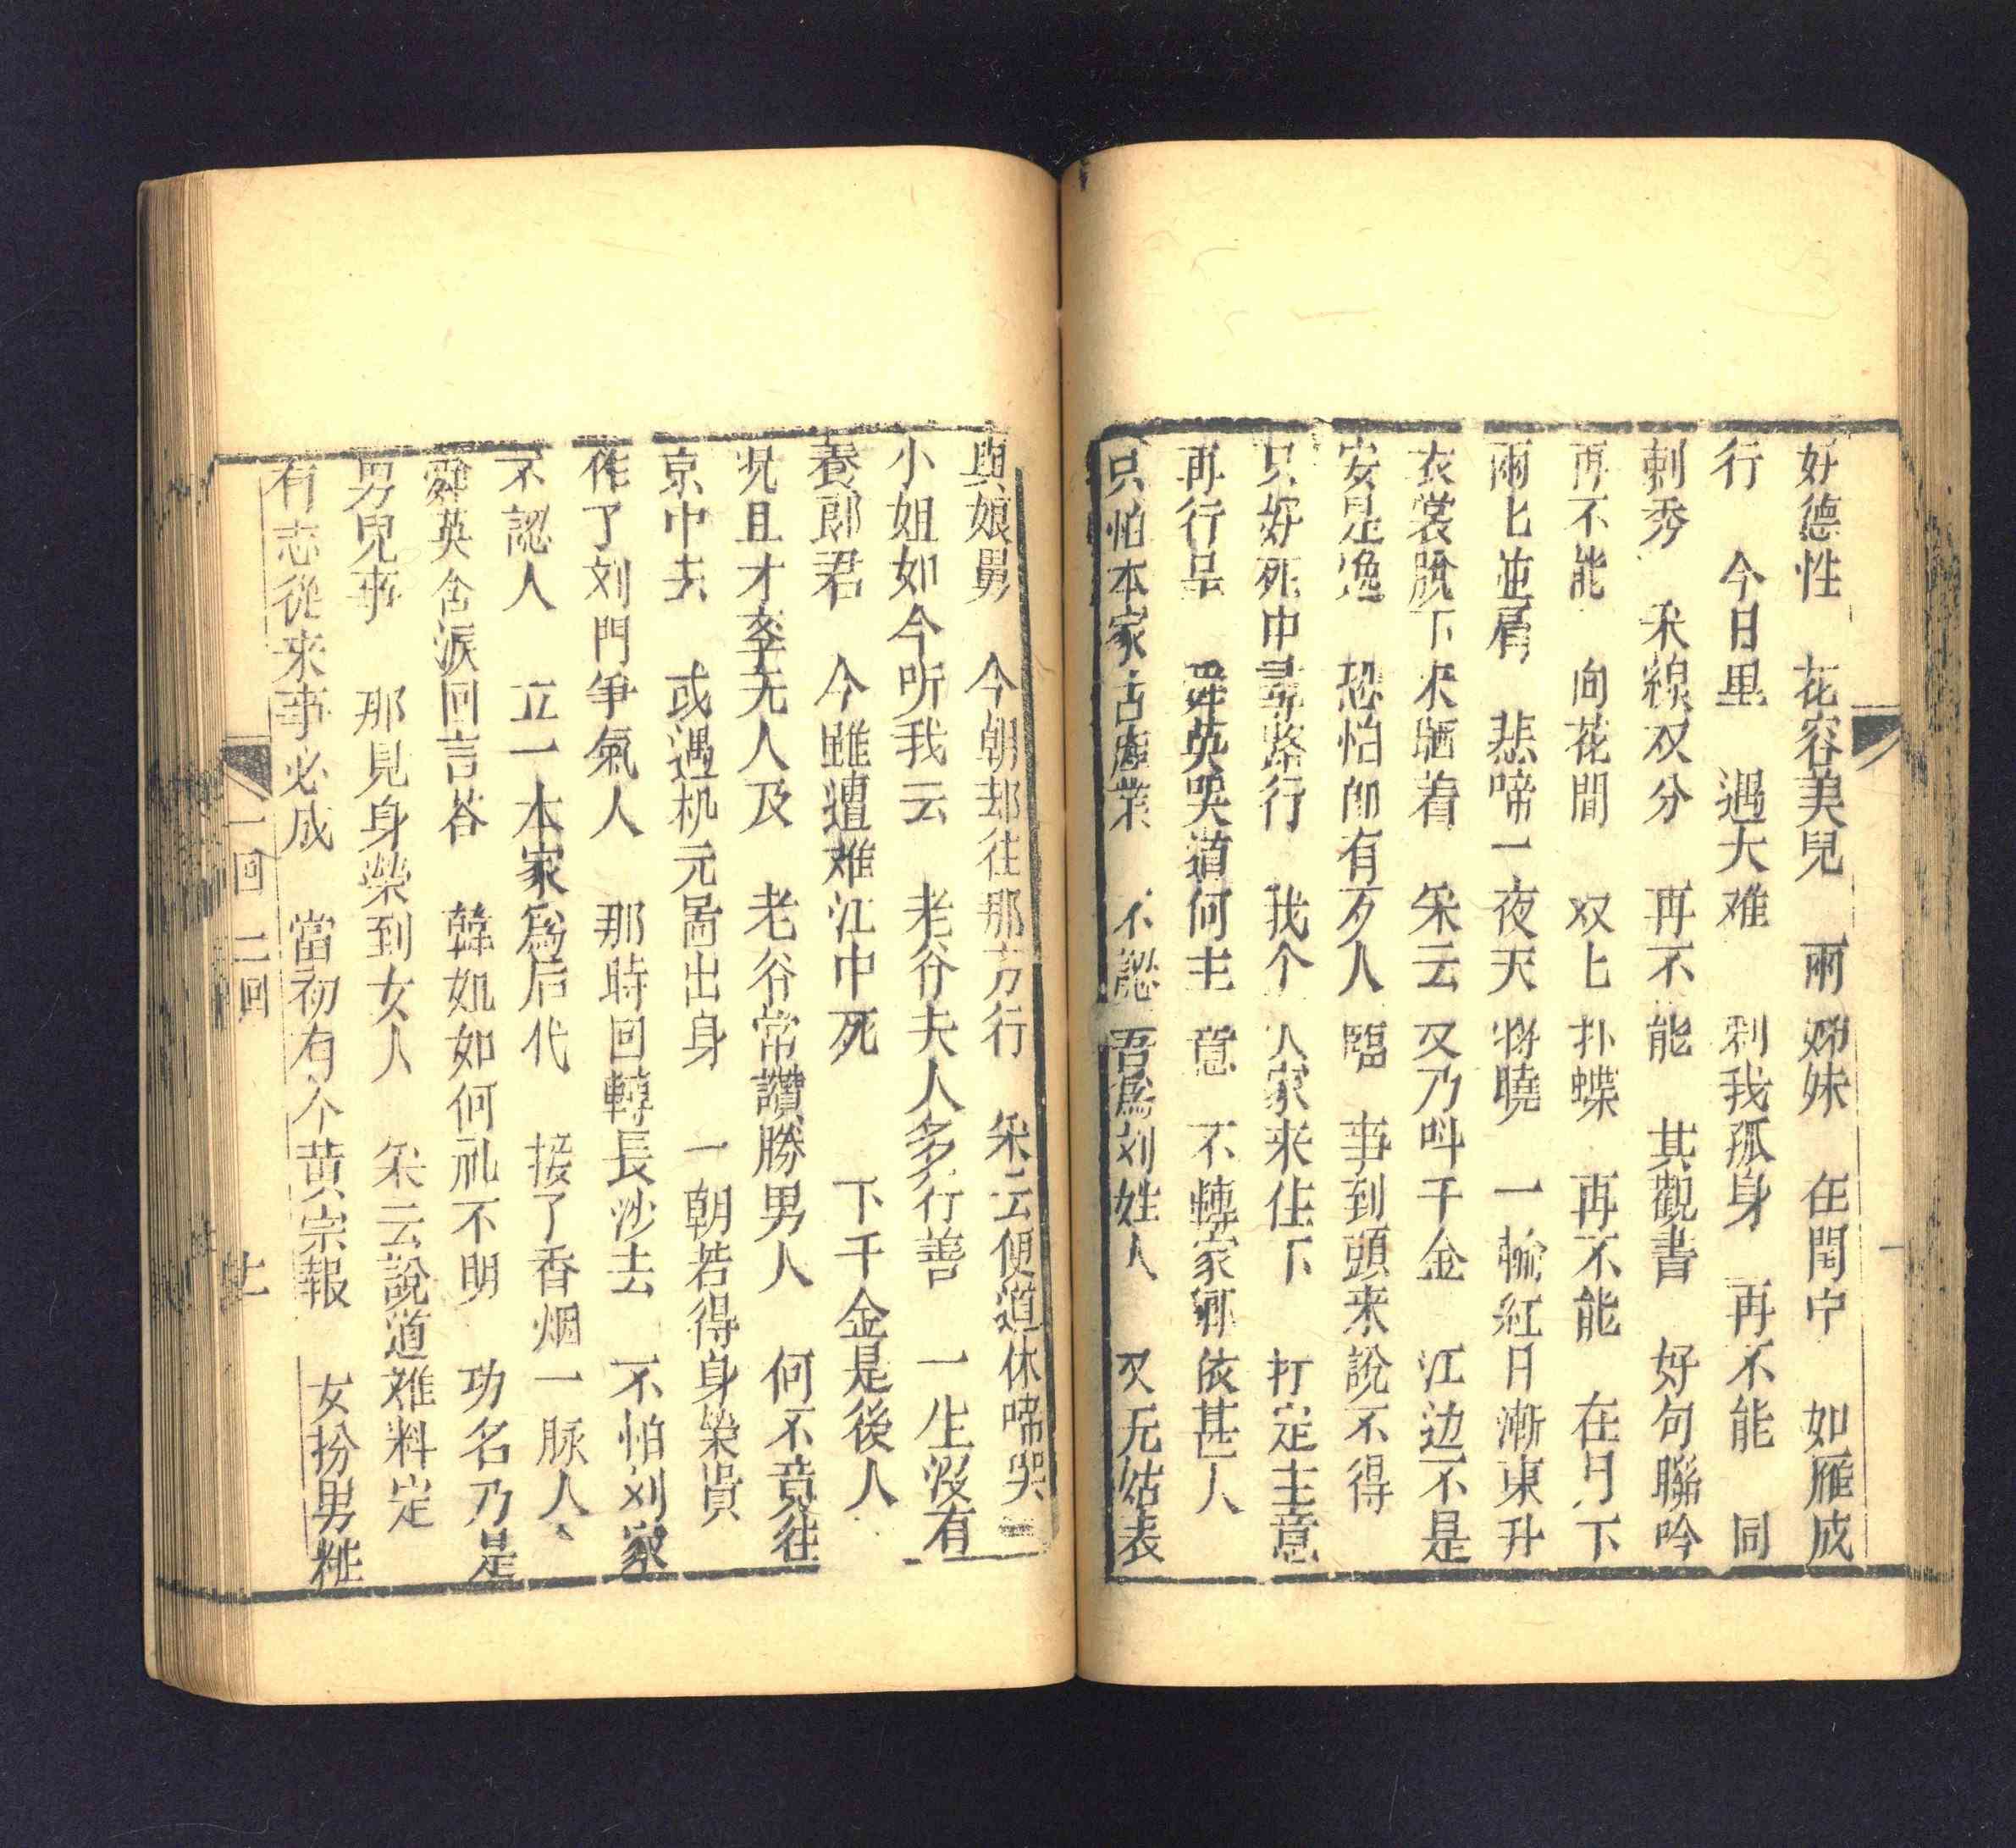 好德性 花容美皃 兩姊妹 在閏中 如雁成
行 今日里 遇大难 剩我孤身 再不能 同
刺秀 釆線双分 再不能 其觀書 好句聯吟
再不能 向花間 双匕扑蝶 再不能 在月下
兩匕並肩 悲啼一夜天将曉 一輪紅日漸東升
衣裳脫下来晒着 釆云又乃呌千金 江边不是
安是逸 恐怕郎有歹人臨 事到頭来說不得
只好死中尋路行 我个人家来住下 打定主意
再行呈 舜英哭道何主意 不轉家鄉依甚人
只怕本家占産業 不認吾為刘姓人 又无姑表
與娘舅 今朝却往那方行 釆云便道休啼哭
小姐如今听我云 老谷夫人多行善 一生没有
養郎君 今雖遭难江中死 下千金是後人
况且才李无人及 老谷常讚勝男人 何不竟往
京中去 或遇机元啚出身 一朝若得身榮貴
作了刘門争氣人 那時回轉長沙去 不怕刘家
不認人 立一本家為后代 接了香烟一脉人
舜英含淚回言荅 韓姐如何礼不明 功名乃是
男兒事 那見身榮到女人 釆云說道难料定
有志從来事必成 當初有个黄宗報 女扮男粧
一回 二回
廿一